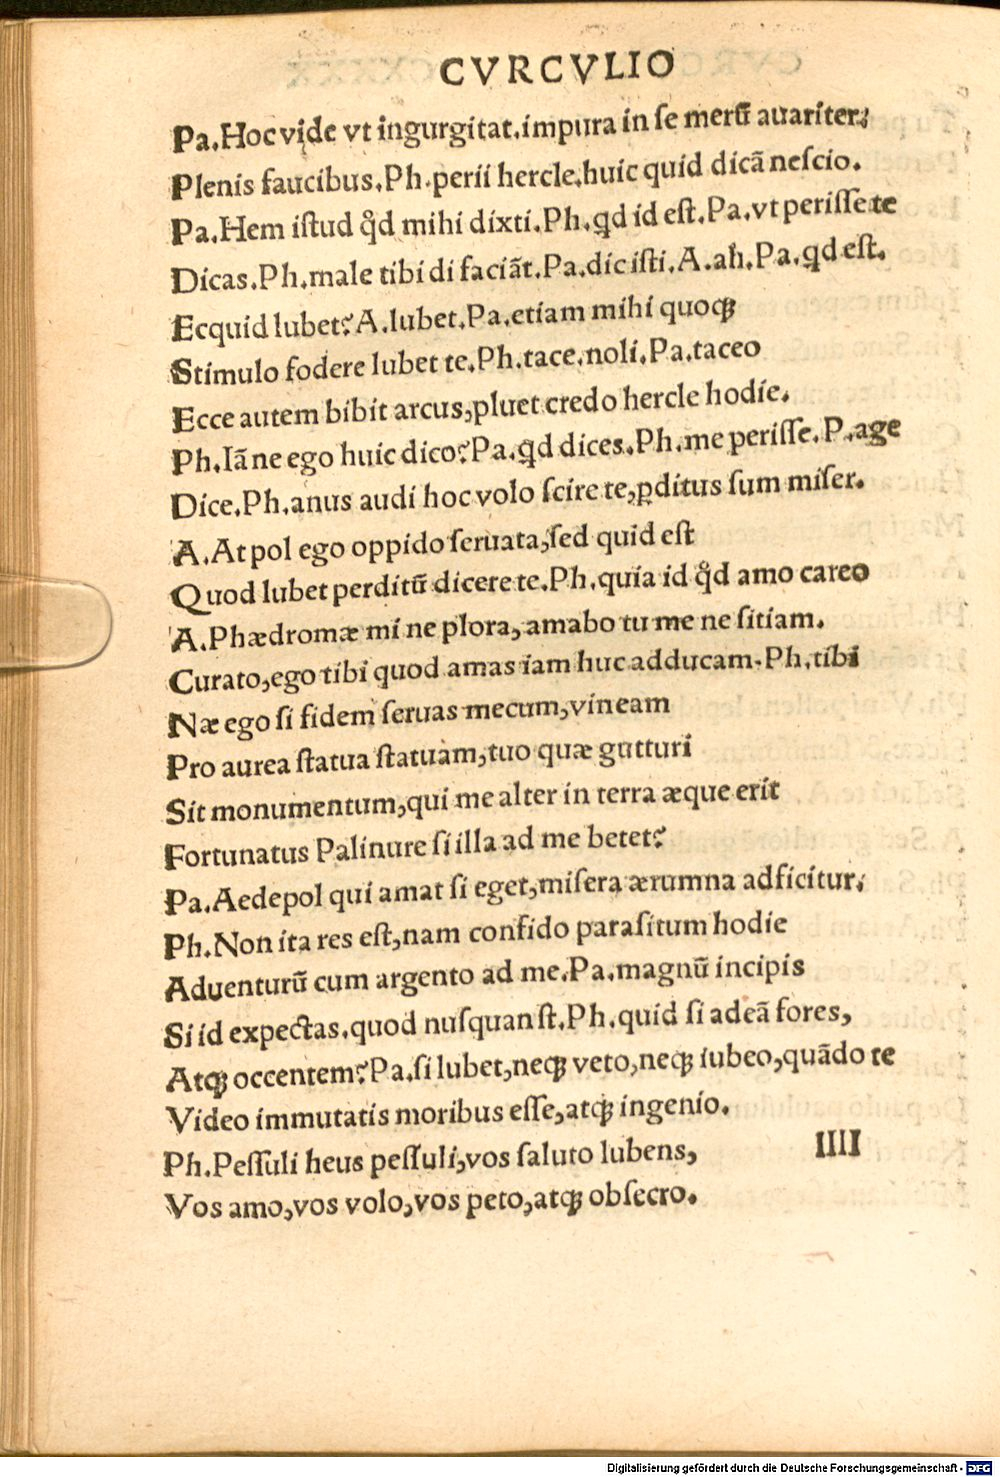 CVRCVLIO
Pa.Hoc vide vt ingurgitat.impura in se merū auariter;
Plenis faucibus.Ph.perii hercle.huic quid dicā nescio.
Pa.Hem istud qđ mihi dixti.Ph.qd id est.Pa.vt perisse te
Dicas.Ph.male tibi di faciāt.Pa.dic isti.A.ah.Pa.qd est.
Ecquid lubet?A.lubet.Pa.etiam mihi quoqꝫ
Stimulo fodere lubet te.Ph.tace.noli.Pa.taceo
Ecce autem bibit arcus,pluet credo hercle hodie.
Ph.Iā ne ego huic dico?Pa.qd dices.Ph.me perisse.P.age
Dice.Ph.anus audi hoc volo scire te,ꝑditus sum miser.
A.At pol ego oppido seruata,sed quid est
Quod lubet perditū dicere te.Ph.quia id qđ amo careo
A.Phædromæ mi ne plora,amabo tu me ne sitiam.
Curato,ego tibi quod amas iam huc adducam.Ph.tibi
Næ ego si fidem seruas mecum,vineam
Pro aurea statua statuam,tuo quæ gutturi
Sit monumentum,qui me alter in terra æque erit
Fortunatus Palinure si illa ad me betet?
Pa.Aedepol qui amat si eget,misera ærumna adficitur;
Ph.Non ita res est,nam confido parasitum hodie
Aduenturū cum argento ad me.Pa.magnū incipis
Si id expectas.quod nusquanst.Ph.quid si adeā fores,
Atqꝫ occentem?Pa.si lubet,neqꝫ veto,neqꝫ iubeo,quādo te
Video immutatis moribus esse,atqꝫ ingenio.
Ph.Pessuli heus pessuli,vos saluto lubens, IIII
Vos amo,vos volo,vos peto,atqꝫ obsecro.
Digitalisierung gefördert durch die Deutsche Forschungsgemeinschaft - DFG